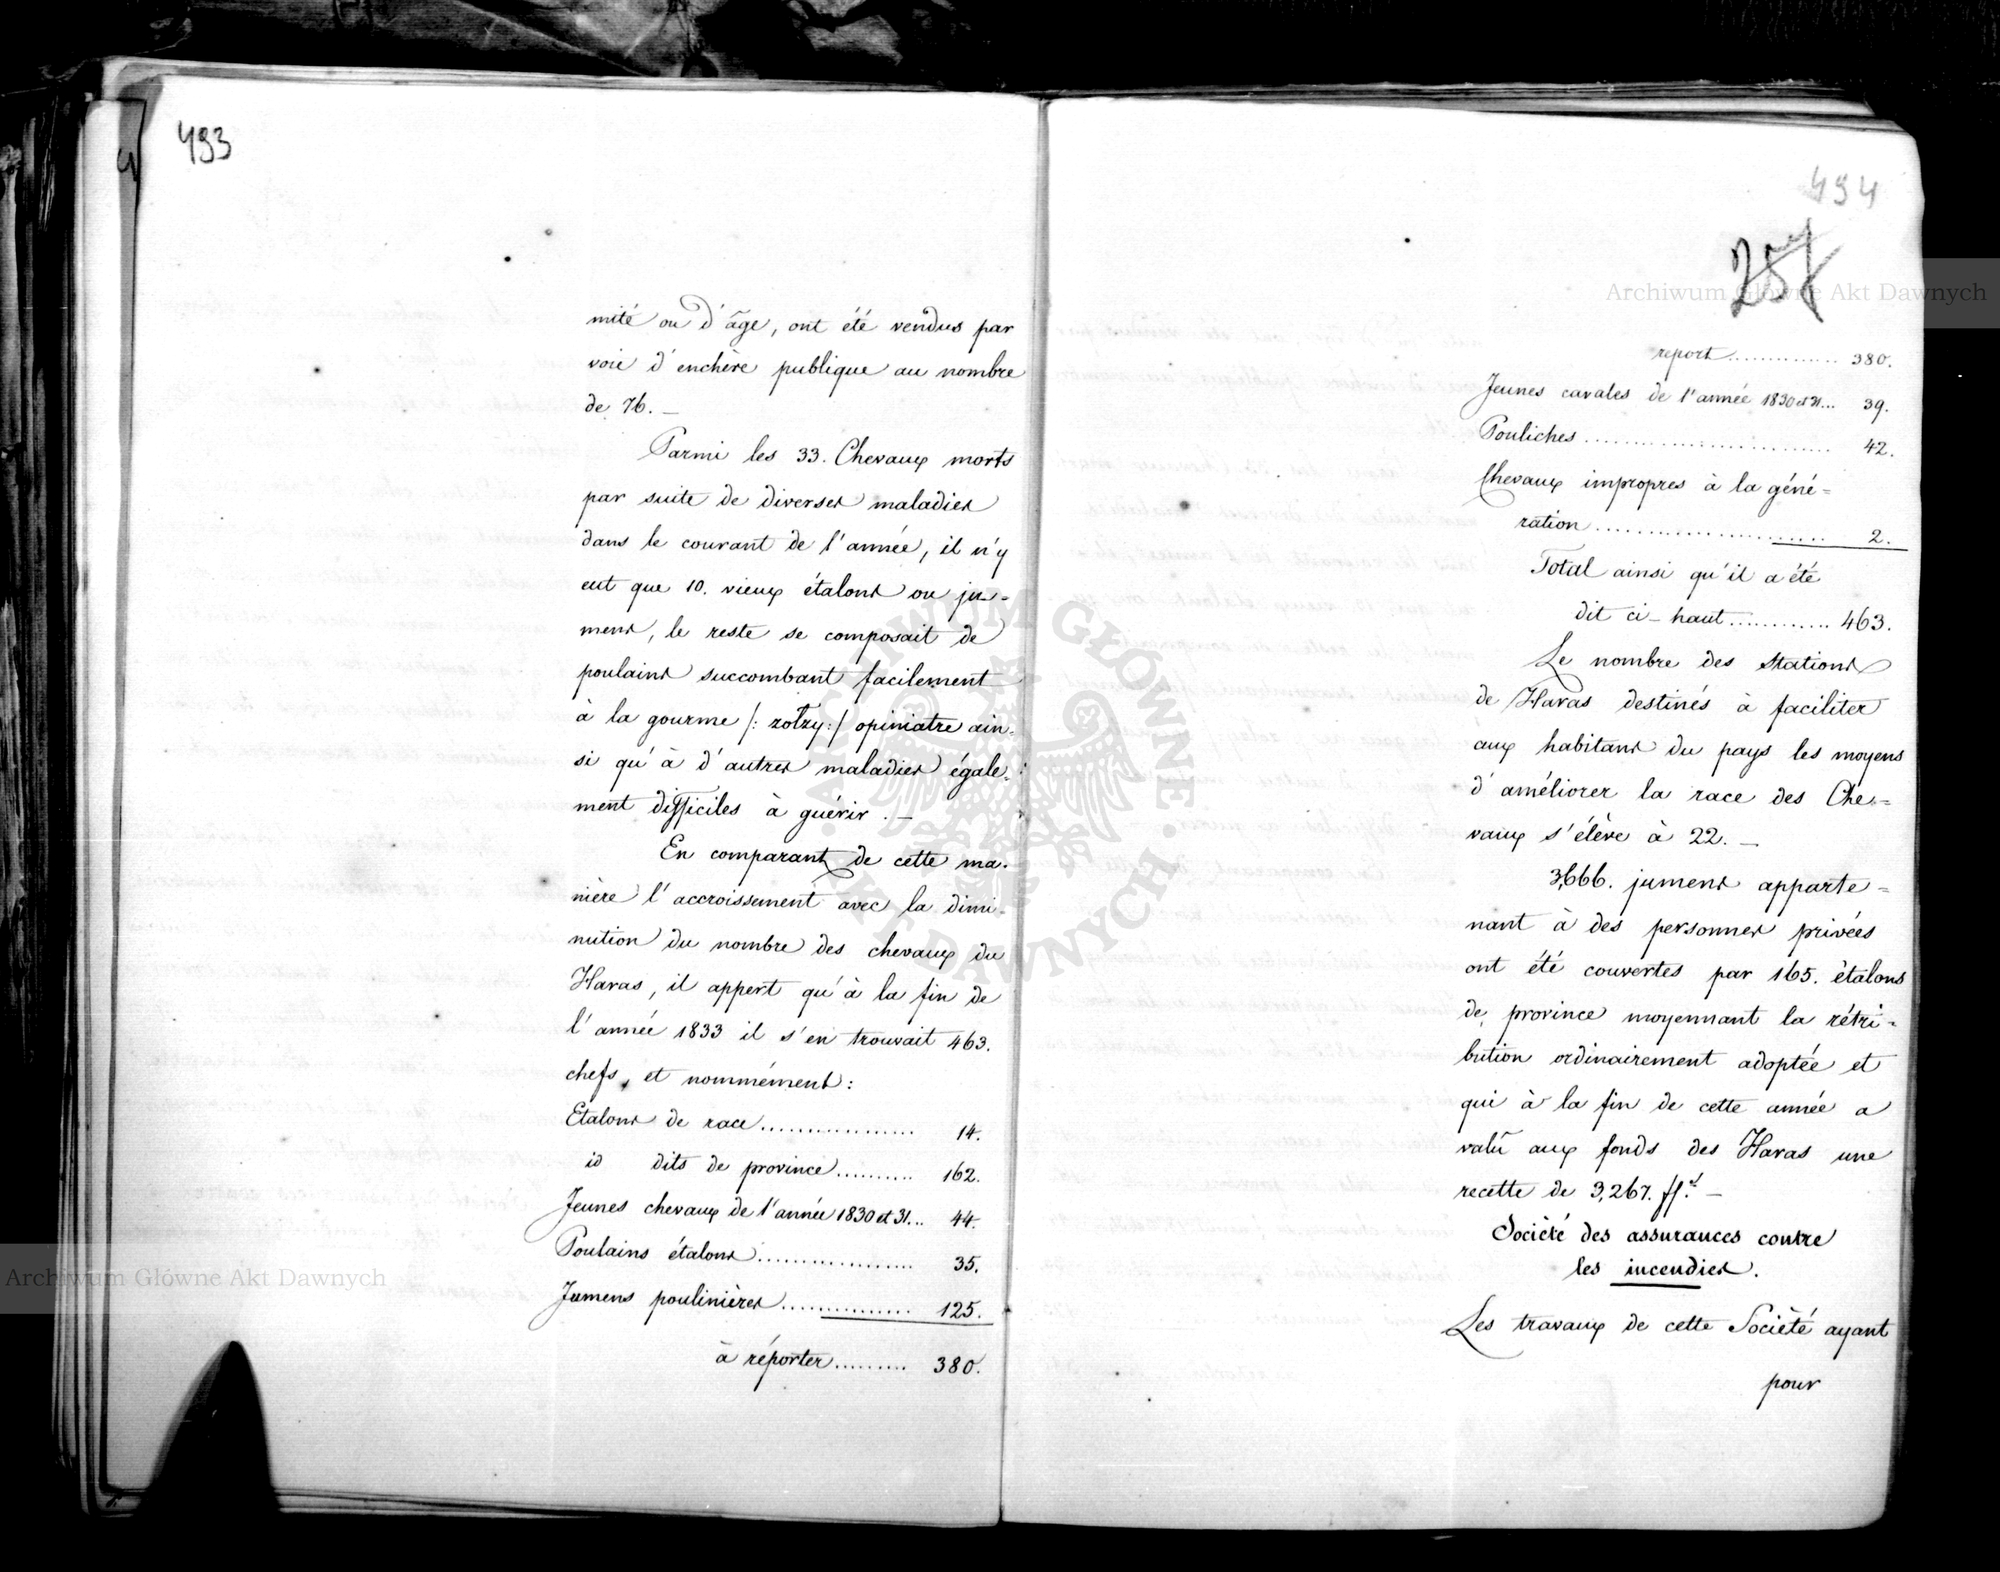 493
mité ou d'âge, ont été vendus par
voie d'enchère publique au nombre
de 76. —
Parmi les 33. Chevaux morts
par suite de diverses maladies
dans le courant de l'année, il n'y
eut que 10. vieux étalons ou ju=
mens, le reste se composait de
poulains succombant facilement
à la gourme /: zołzy :/ opiniatre ain=
si qu'à d'autres maladies égale=
ment difficiles à guérir. —
En comparant de cette ma=
nière l'accroissement avec la dimi=
nution du nombre des chevaux du
Haras, il appert qu'à la fin de
l'année 1833 il s'en trouvait 463.
chefs, et nommément:
Etalons de race ................. 14.
id dits de province ......... 162.
Jeunes chevaux de l'année 1830 et 31... 44.
Poulains étalons ................. 35.
Jumens poulinières ............... 125.
à réporter ......... 380.
494
257
report ............. 380.
Jeunes cavales de l'année 1830 et 31... 39.
Pouliches ........................... 42.
Chevaux impropres à la géné=
ration ......................... 2.
Total ainsi qu'il a été
dit ci-haut ............ 463.
Le nombre des stations
de Haras destinés à faciliter
aux habitans du pays les moyens
d'améliorer la race des Che=
vaux s'élève à 22. —
3,666. jumens apparte=
nant à des personnes privées
ont été couvertes par 165. étalons
de province moyennant la rétri=
bution ordinairement adoptée et
qui à la fin de cette année a
valû aux fonds des Haras une
recette de 3,267. fl.s —
Société des assurances contre
les incendies.
Les travaux de cette Société ayant
pour
Archiwum Główne Akt Dawnych
Archiwum Główne Akt Dawnych
ARCHIWUM GŁÓWNE AKT DAWNYCH